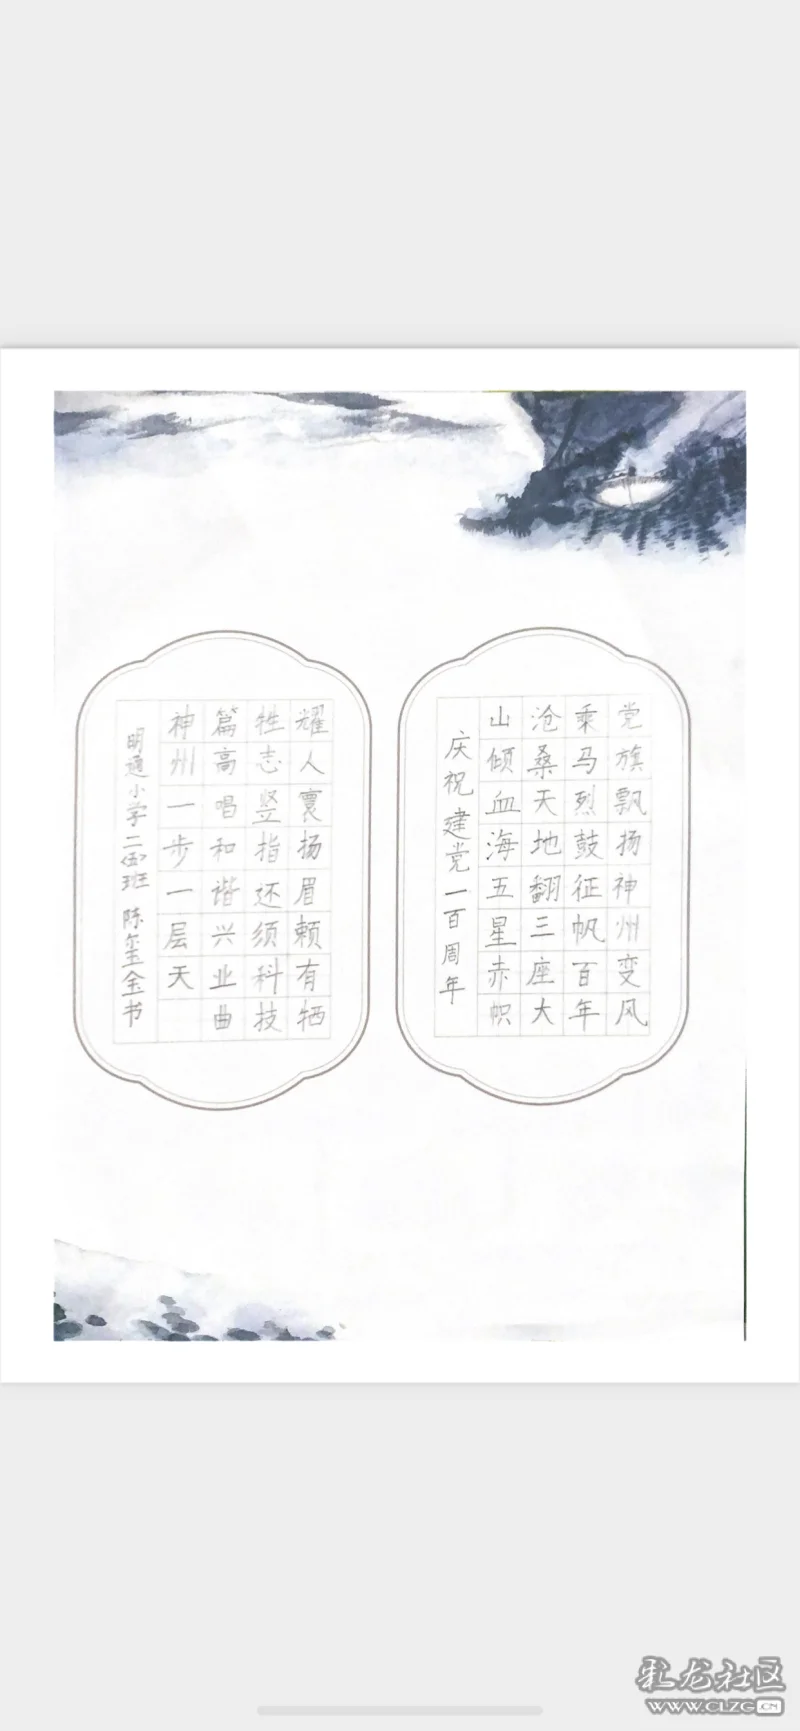 党旗飘扬神州变风
乘马烈鼓征帆百年
沧桑天地翻三座大
山倾血海五星赤帜
庆祝建党一百周年
耀人寰扬眉赖有牺
牲志竖指还须科技
篇高唱和谐兴业曲
神州一步一层天
明通小学二四班 陈玺金书
彩龙社区
WWW.CLZG.CN